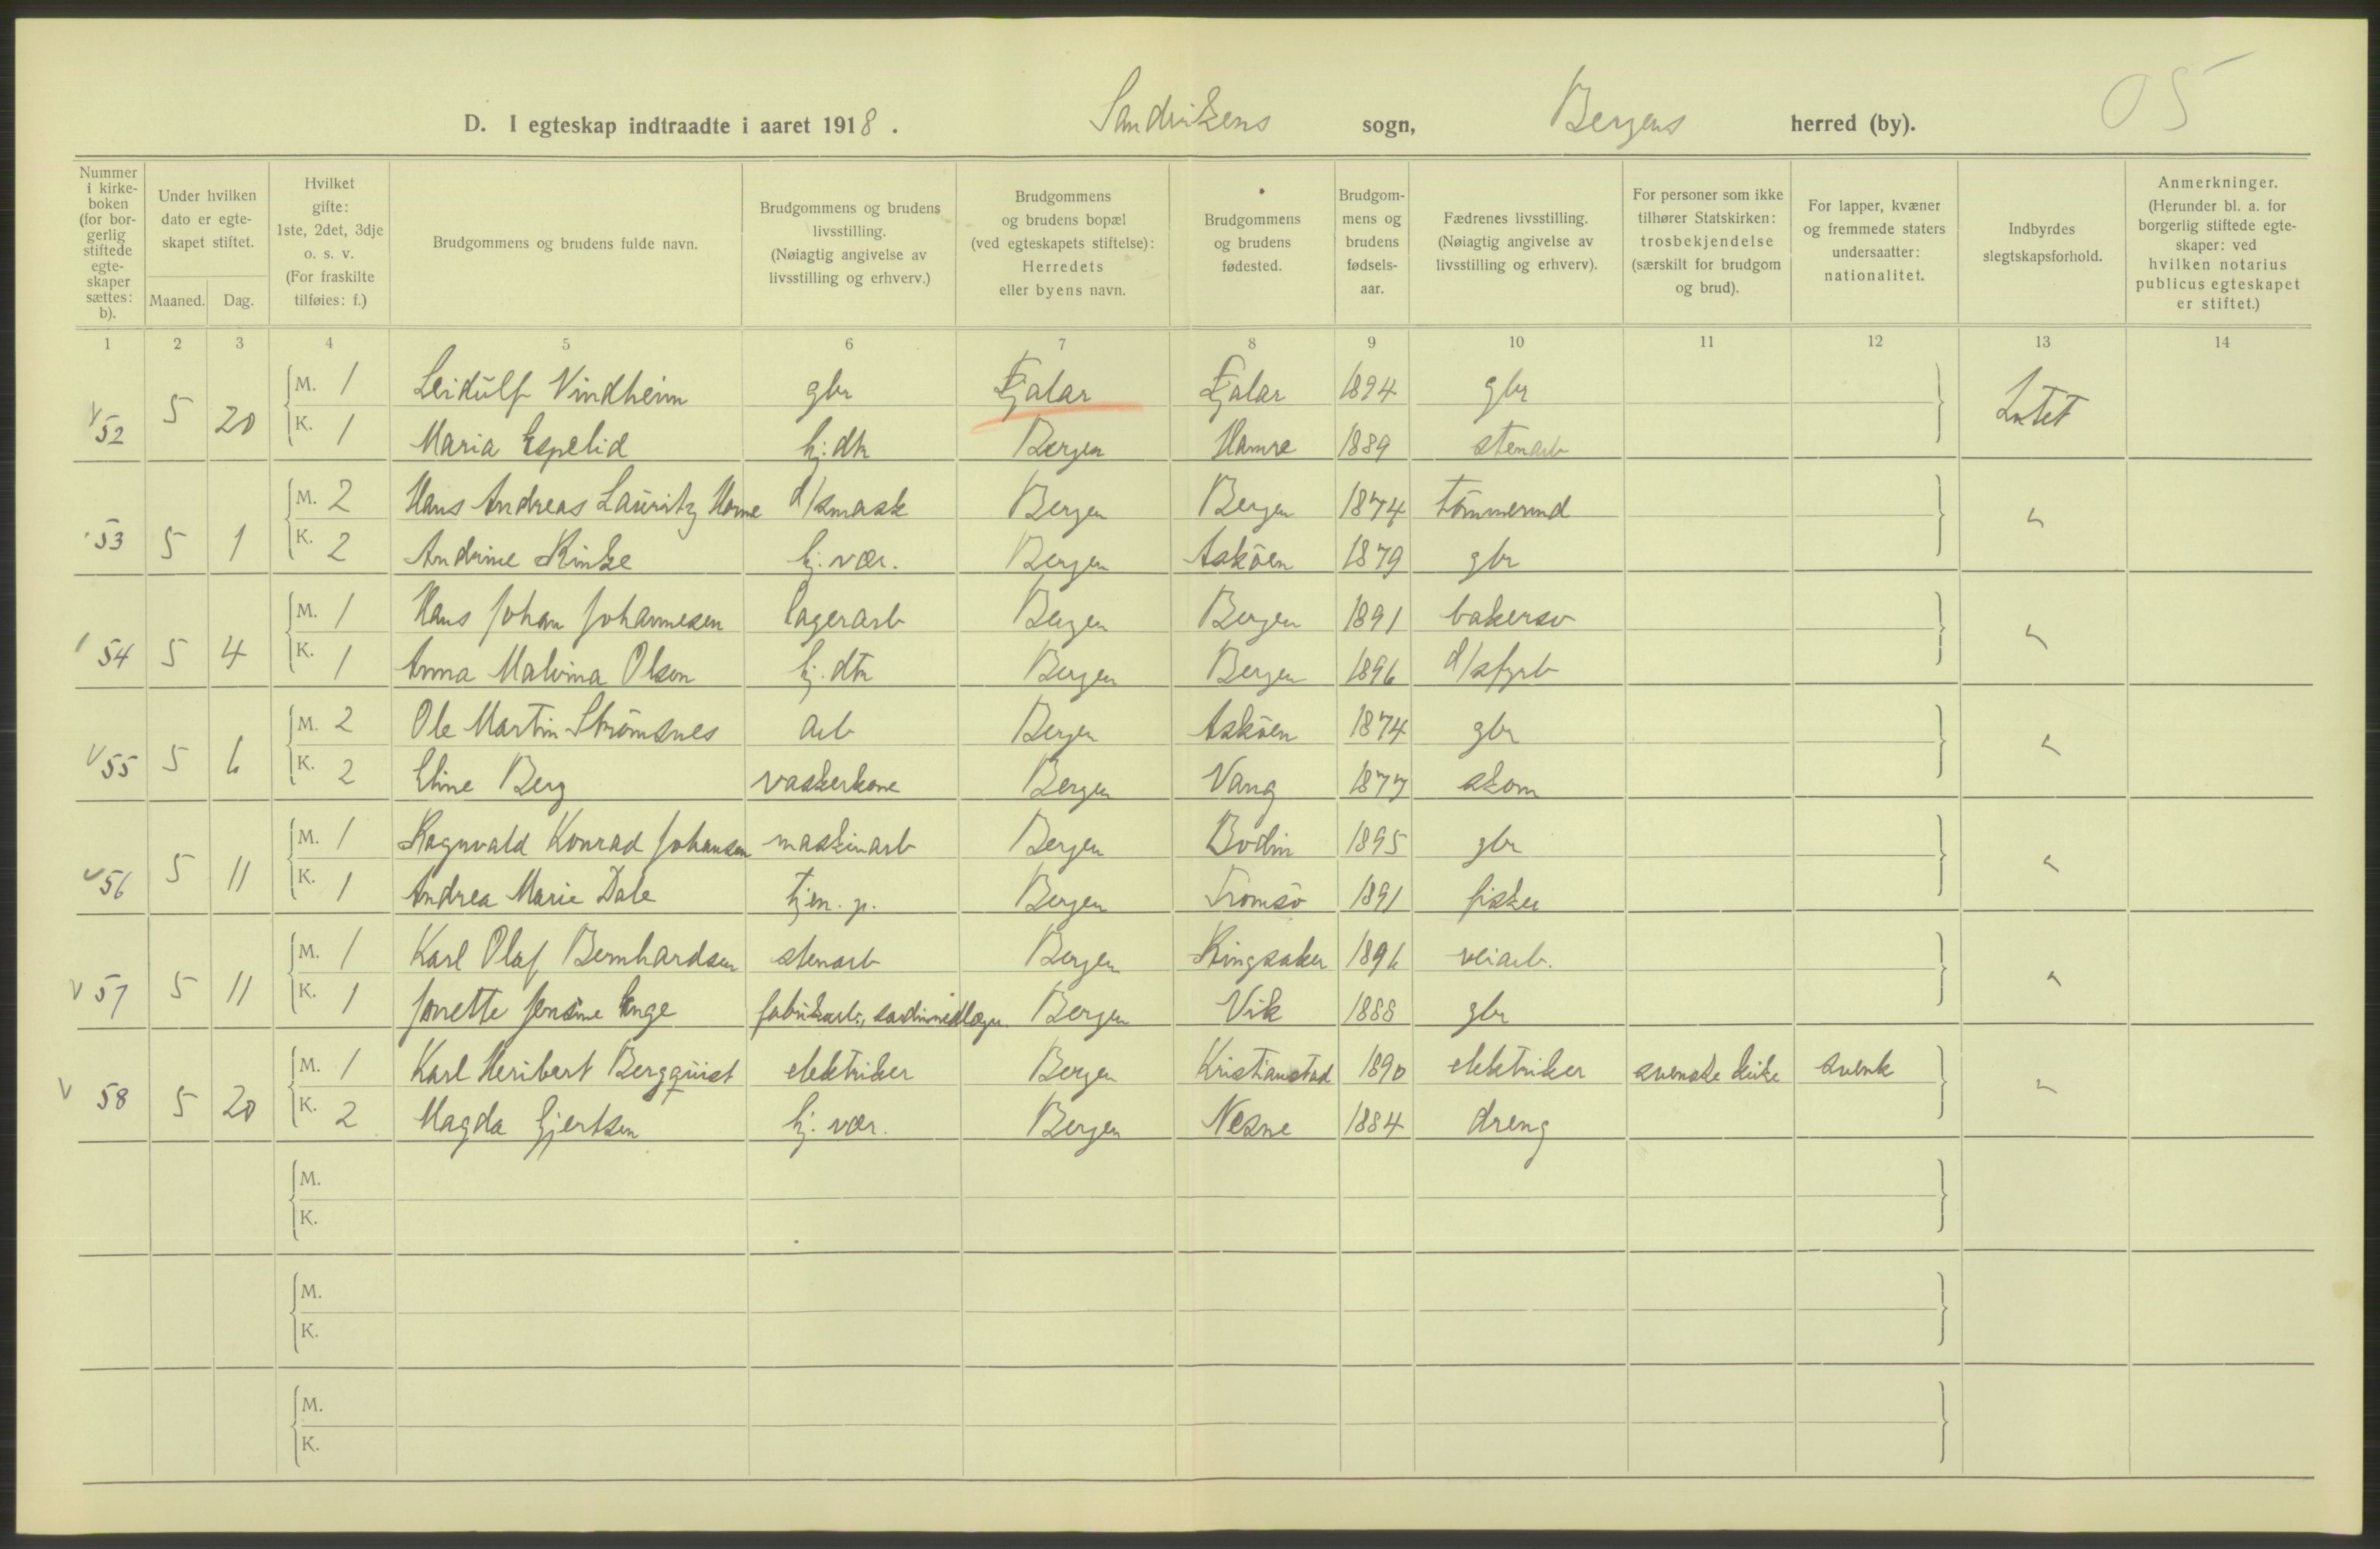 D. I egteskap indtraadte i aaret 1918. Sandvikens sogn, Bergens herred (by). 05
Nummer i kirke-boken (for bor-gerlig stiftede egte-skaper sættes: b).
Under hvilken dato er egte-skapet stiftet.
Maaned. Dag.
Hvilket gifte: 1ste, 2det, 3dje o. s. v. (For fraskilte tilføies: f.)
Brudgommens og brudens fulde navn.
Brudgommens og brudens livsstilling. (Nøiagtig angivelse av livsstilling og erhverv.)
Brudgommens og brudens bopæl (ved egteskapets stiftelse): Herredets eller byens navn.
Brudgommens og brudens fødested.
Brudgom-mens og brudens fødsels-aar.
Fædrenes livsstilling. (Nøiagtig angivelse av livsstilling og erhverv).
For personer som ikke tilhører Statskirken: trosbekjendelse (særskilt for brudgom og brud).
For lapper, kvæner og fremmede staters undersaatter: nationalitet.
Indbyrdes slegtskapsforhold.
Anmerkninger. (Herunder bl. a. for borgerlig stiftede egte-skaper: ved hvilken notarius publicus egteskapet er stiftet.)
1 2 3 4 5 6 7 8 9 10 11 12 13 14
V 52 5 20 M. 1 Leidulf Vindheim gbr Fjalar Fjalar 1894 gbr Intet
K. 1 Maria Espelid hj. dtr Bergen Hamre 1889 stenarb
53 5 1 M. 2 Hans Andreas Lauritz Horne d/smask Bergen Bergen 1874 tömmermd "
K. 2 Andrine Rinke hj. vær. Bergen Asköen 1879 gbr
54 5 4 M. 1 Hans Johan Johannesen lagerarb Bergen Bergen 1891 bakersv "
K. 1 Anna Malvina Olsen hj. dtr Bergen Bergen 1896 d/sfyrb
V 55 5 6 M. 2 Ole Martin Strömsnes arb Bergen Asköen 1874 gbr "
K. 2 Eline Berg vaskerkone Bergen Vang 1877 skom
V 56 5 11 M. 1 Ragnvald Konrad Johansen maskinarb Bergen Bodin 1895 gbr "
K. 1 Andrea Marie Dale tjen. p. Bergen Tromsö 1891 fisker
V 57 5 11 M. 1 Karl Olaf Bernhardsen stenarb Bergen Ringsaker 1896 veiarb. "
K. 1 Jonette Jensine Enge fabrikarb., sardinnedlægn. Bergen Vik 1888 gbr
V 58 5 20 M. 1 Karl Heribert Bergquist elektriker Bergen Kristianstad 1890 elektriker svenske kirke svensk "
K. 2 Magda Gjertsen hj. vær. Bergen Nesne 1884 dreng
M.
K.
M.
K.
M.
K.